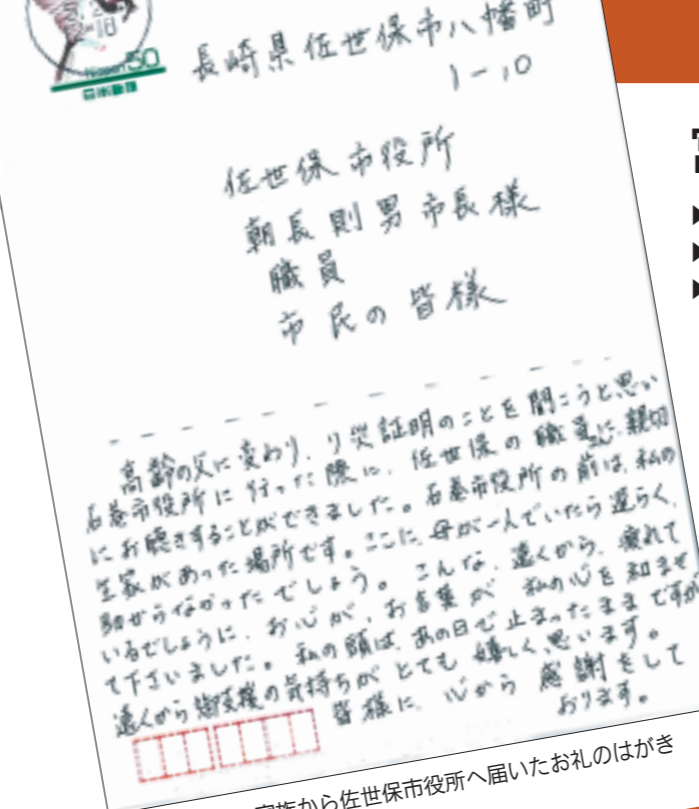 50
長崎県佐世保市八幡町
1-10
佐世保市役所
朝長則男市長様
職員
市民の皆様
高齢の父に変わり、り災証明のことを聞こうと思い
石巻市役所に行った際に、佐世保の職員に親切
にお聴きすることができました。石巻市役所の前は、私の
生家があった場所です。ここに、母が一人でいたら還らく、
助からなかったでしょう。こんな、遠くから、疲れて
いるでしょうに、お心が、お言葉が私の心を和ませ
て下さいました。私の顔は、あの日で止まったままですが
遠くから御支援の気持ちがとても嬉しく思います。
皆様に、心から感謝をして
おります。
家族から佐世保市役所へ届いたお礼のはがき